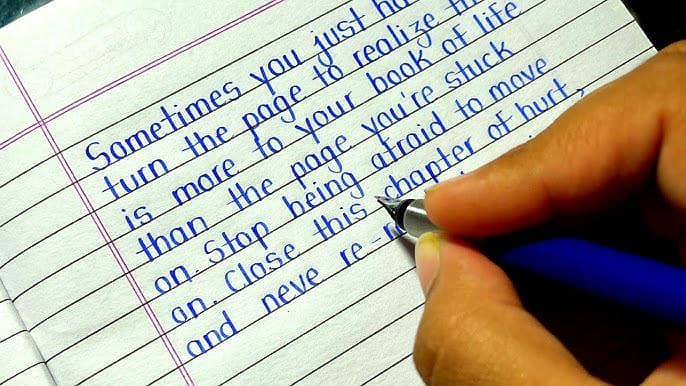 Sometimes you just ha
turn the page to realize th
is more to your book of life
than the page you're stuck
on. Stop being afraid to move
on. Close this chapter of hurt,
and neve re-r